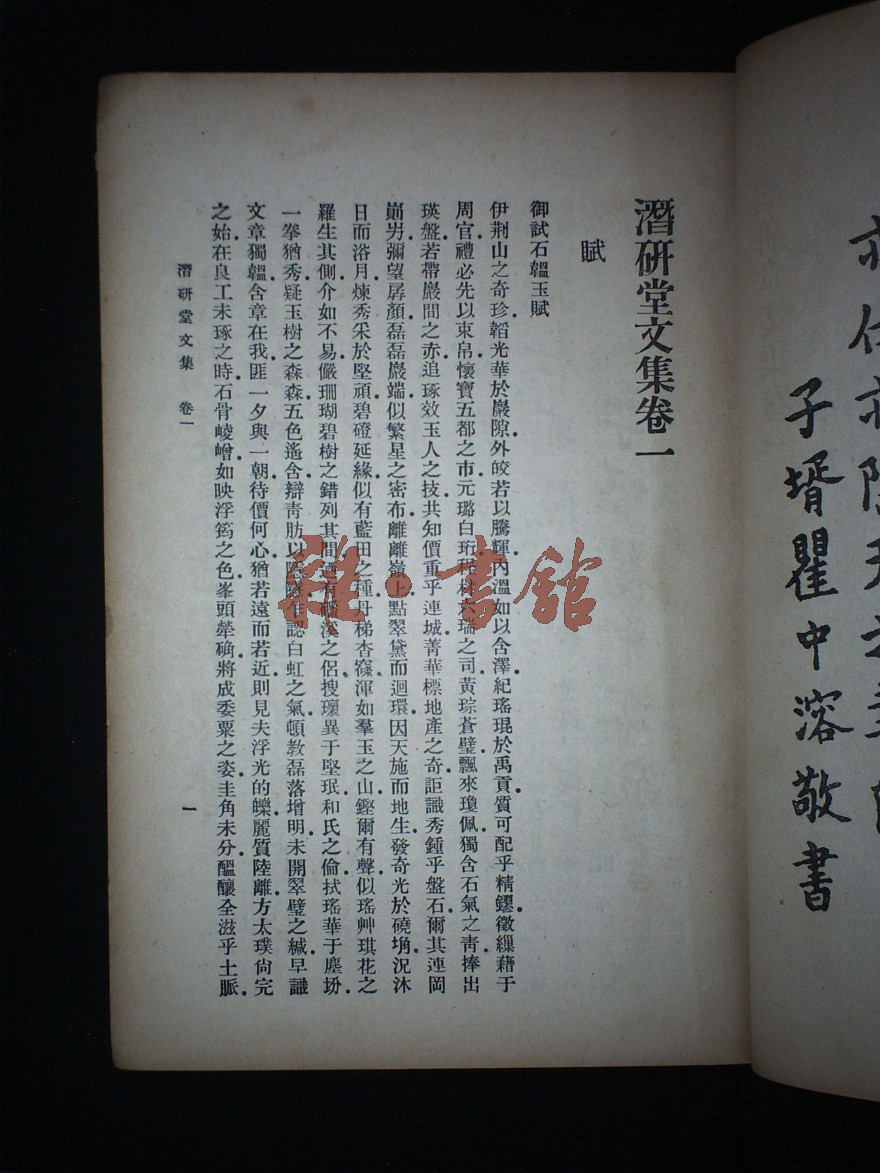 亦仕亦隱
子壻瞿中溶敬書
潛硏堂文集卷一
賦
御試石韞玉賦
伊荆山之奇珍韜光華於巖隙外皎若以騰輝內溫如以含澤紀瑤琨於禹貢質可配乎精鏐徵繅藉于
周官禮必先以束帛懷寶五都之市元璐白珩掄材六瑞之司黃琮蒼璧飄來瓊佩獨含石氣之靑捧出
瑛盤若帶巖間之赤追琢效玉人之技共知價重乎連城菁華標地產之奇詎識秀鍾乎盤石爾其連岡
崱屴彌望孱顏磊磊巖端似繁星之密布離離嶺上點翠黛而迴環因天施而地生發奇光於磽埆況沐
日而浴月煉秀采於堅頑碧磴延緣似有藍田之種丹梯杳窱渾如羣玉之山鏗爾有聲似瑤艸琪花之
羅生其側介如不易儼珊瑚碧樹之錯列其間迺有磻溪之侶搜瓌異于堅珉和氏之倫拭瑤華于塵坋
一拳猶秀疑玉樹之森森五色遙含辯靑肪以隱隱乍認白虹之氣頓教磊落增明未開翠璧之緘早識
文章獨韞含章在我匪一夕與一朝待價何心猶若遠而若近則見夫浮光的皪麗質陸離方太璞尙完
之始在良工未琢之時石骨崚嶒如映浮筠之色峯頭犖确將成委粟之姿圭角未分醞釀全滋乎土脈
潛硏堂文集 卷一
一
雜·書館